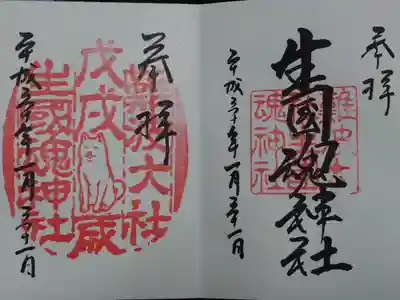 奉拝
生國魂神社
難波大
魂神社
平成三十年一月三十一日
奉拝
難波大社
戊戌歳
生國魂神社
平成三十年一月三十一日